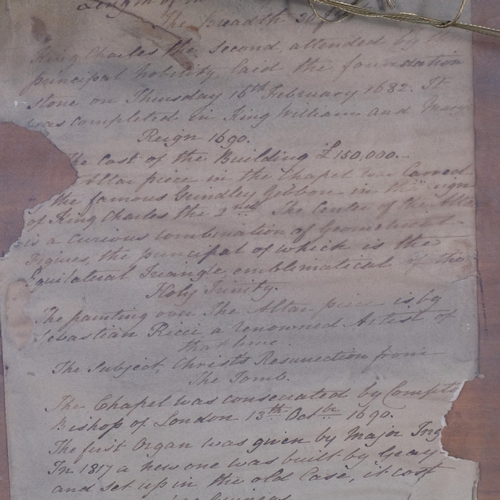 Length of
The Breadth 30 f
King Charles the Second, attended by
principal Nobility laid the foundation
Stone on Thursday 16th February 1682. It
was completed in King William and Mary
Reign 1690.
The Cost of the Building £150,000.
Altar piece in the Chapel was Carved
the famous Grindley Gibbon in the reign
of King Charles the 2nd. The Center of the Altar
is a Curious Combination of Geometrical
Figures, the principal of which is the
Equilateral Triangle, emblematical of the
Holy Trinity.
The painting over The Altar piece is by
Sebastian Ricci a renowned Artist of
that time.
The Subject, Christs Resurection from
The Tomb.
The Chapel was consecrated by Compt
Bishop of London 13th Octbr 1690.
The first Organ was given by Major Ing
In 1817 a new one was built by Gray
and set up in the old Case, it cost
Guineas